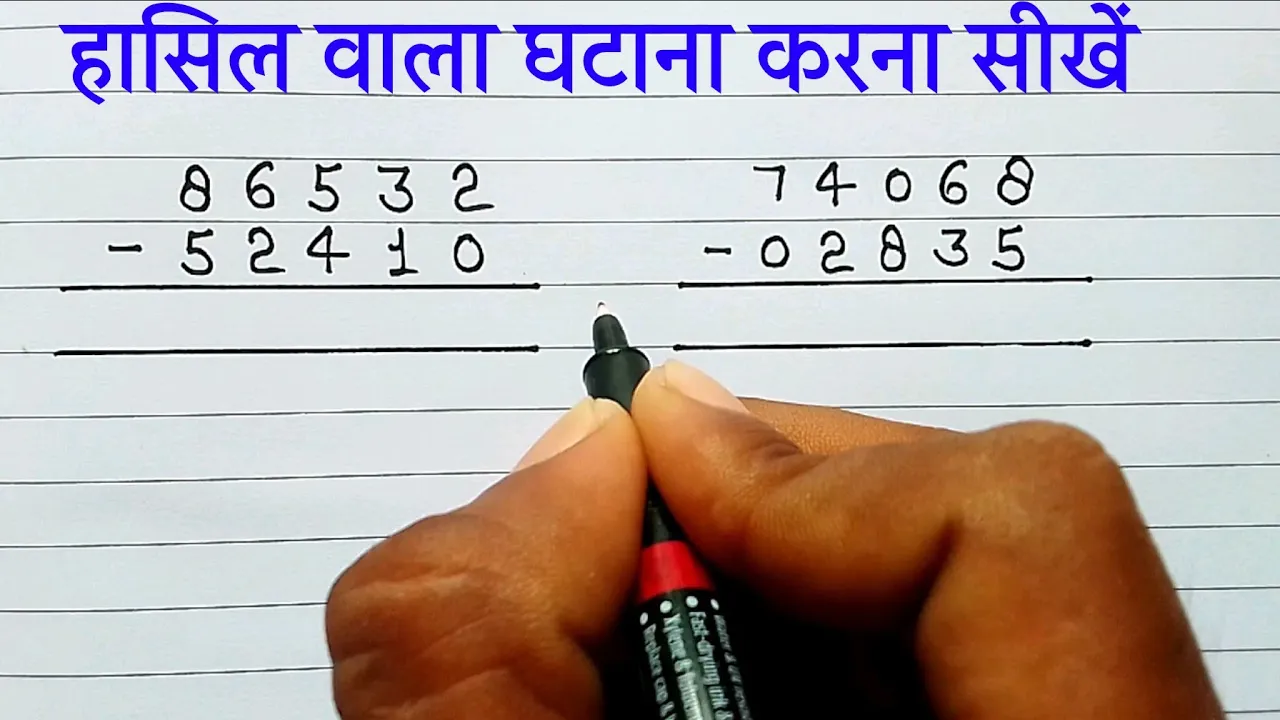 हासिल वाला घटाना करना सीखें
8 6 5 3 2
- 5 2 4 1 0
7 4 0 6 8
- 0 2 8 3 5
Fast-drying ink &
Xylene &
Replace cap &